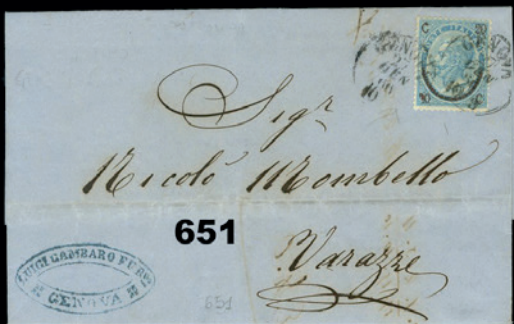 GENOVA
27
GEN
66
10
Sigr
Nicolò Mombello
651
Varazze
LUIGI GAMBARO FU
GENOVA
651